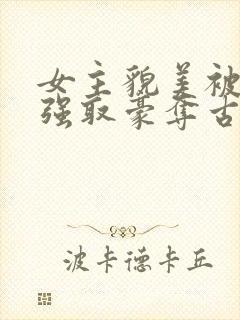 女主貌美被
强取豪夺古
波卡德卡丘